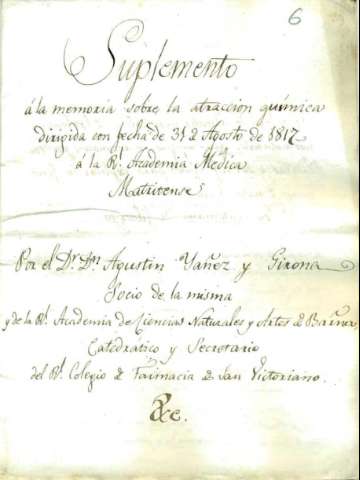 6
Suplemento
á la memoria sobre la atraccion química
dirigida con fecha de 31 2 Agosto de 1817
á la Rl. Academia Médica
Matritense
Por el Dr. Dn. Agustin Yañez y Girona
Socio de la misma
y de la Rl. Academia de Ciencias Naturales y Artes 2 Barna,
Catedrático y Secretario
del Rl. Colegio 2 Farmacia 2 San Victoriano.
&ce.